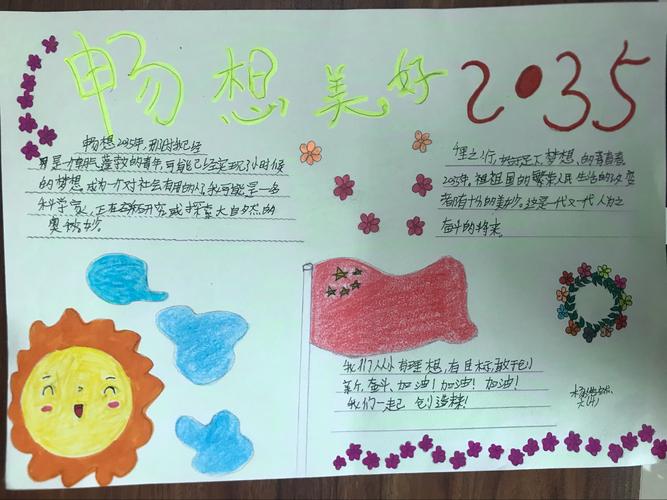 畅想美好2035
畅想2035年，那时我已经
是一个朝气蓬勃的青年，可能已经实现了小时候
的梦想，成为一个对社会有用的人，我可能是一名
科学家，正在研究或探索大自然的
奥妙。
千里之行，始于足下，梦想的青春
2035年，祖国的繁荣人民生活的改变
都有十分的美妙。这是一代又一代人为之
奋斗的将来
我们从小有理想，有目标，敢于创
新，奋斗加油！加油！加油！
我们一起创造辉